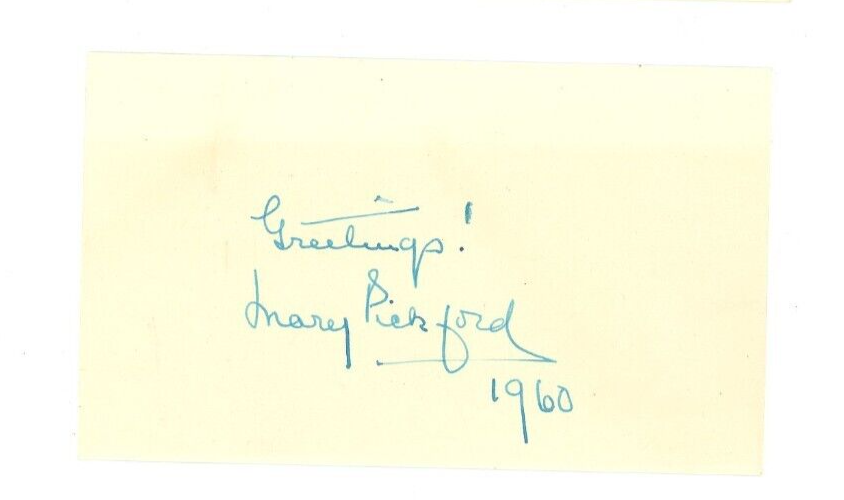 Greetings!
Mary Pickford
1960